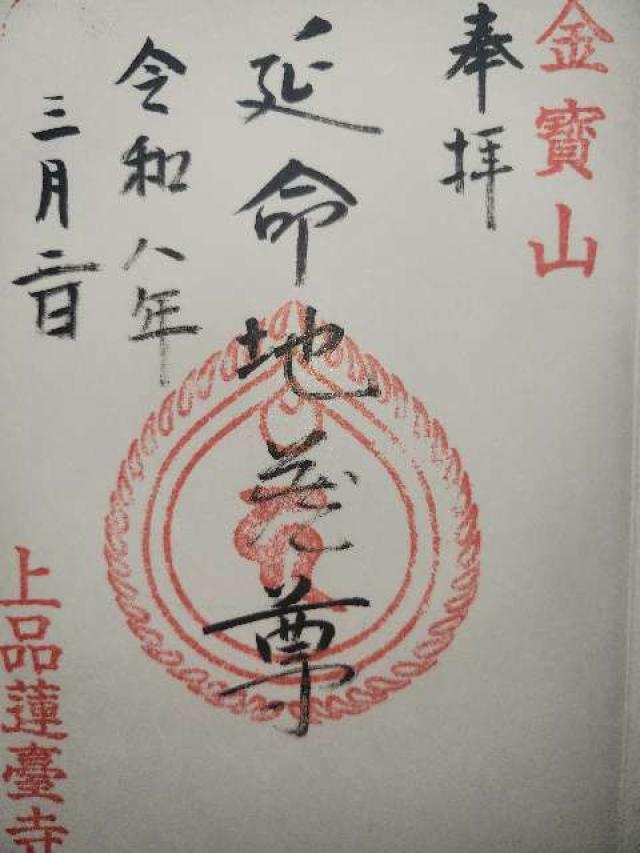 金寶山
奉拝
延命地蔵尊
令和八年
三月二日
上品蓮臺寺